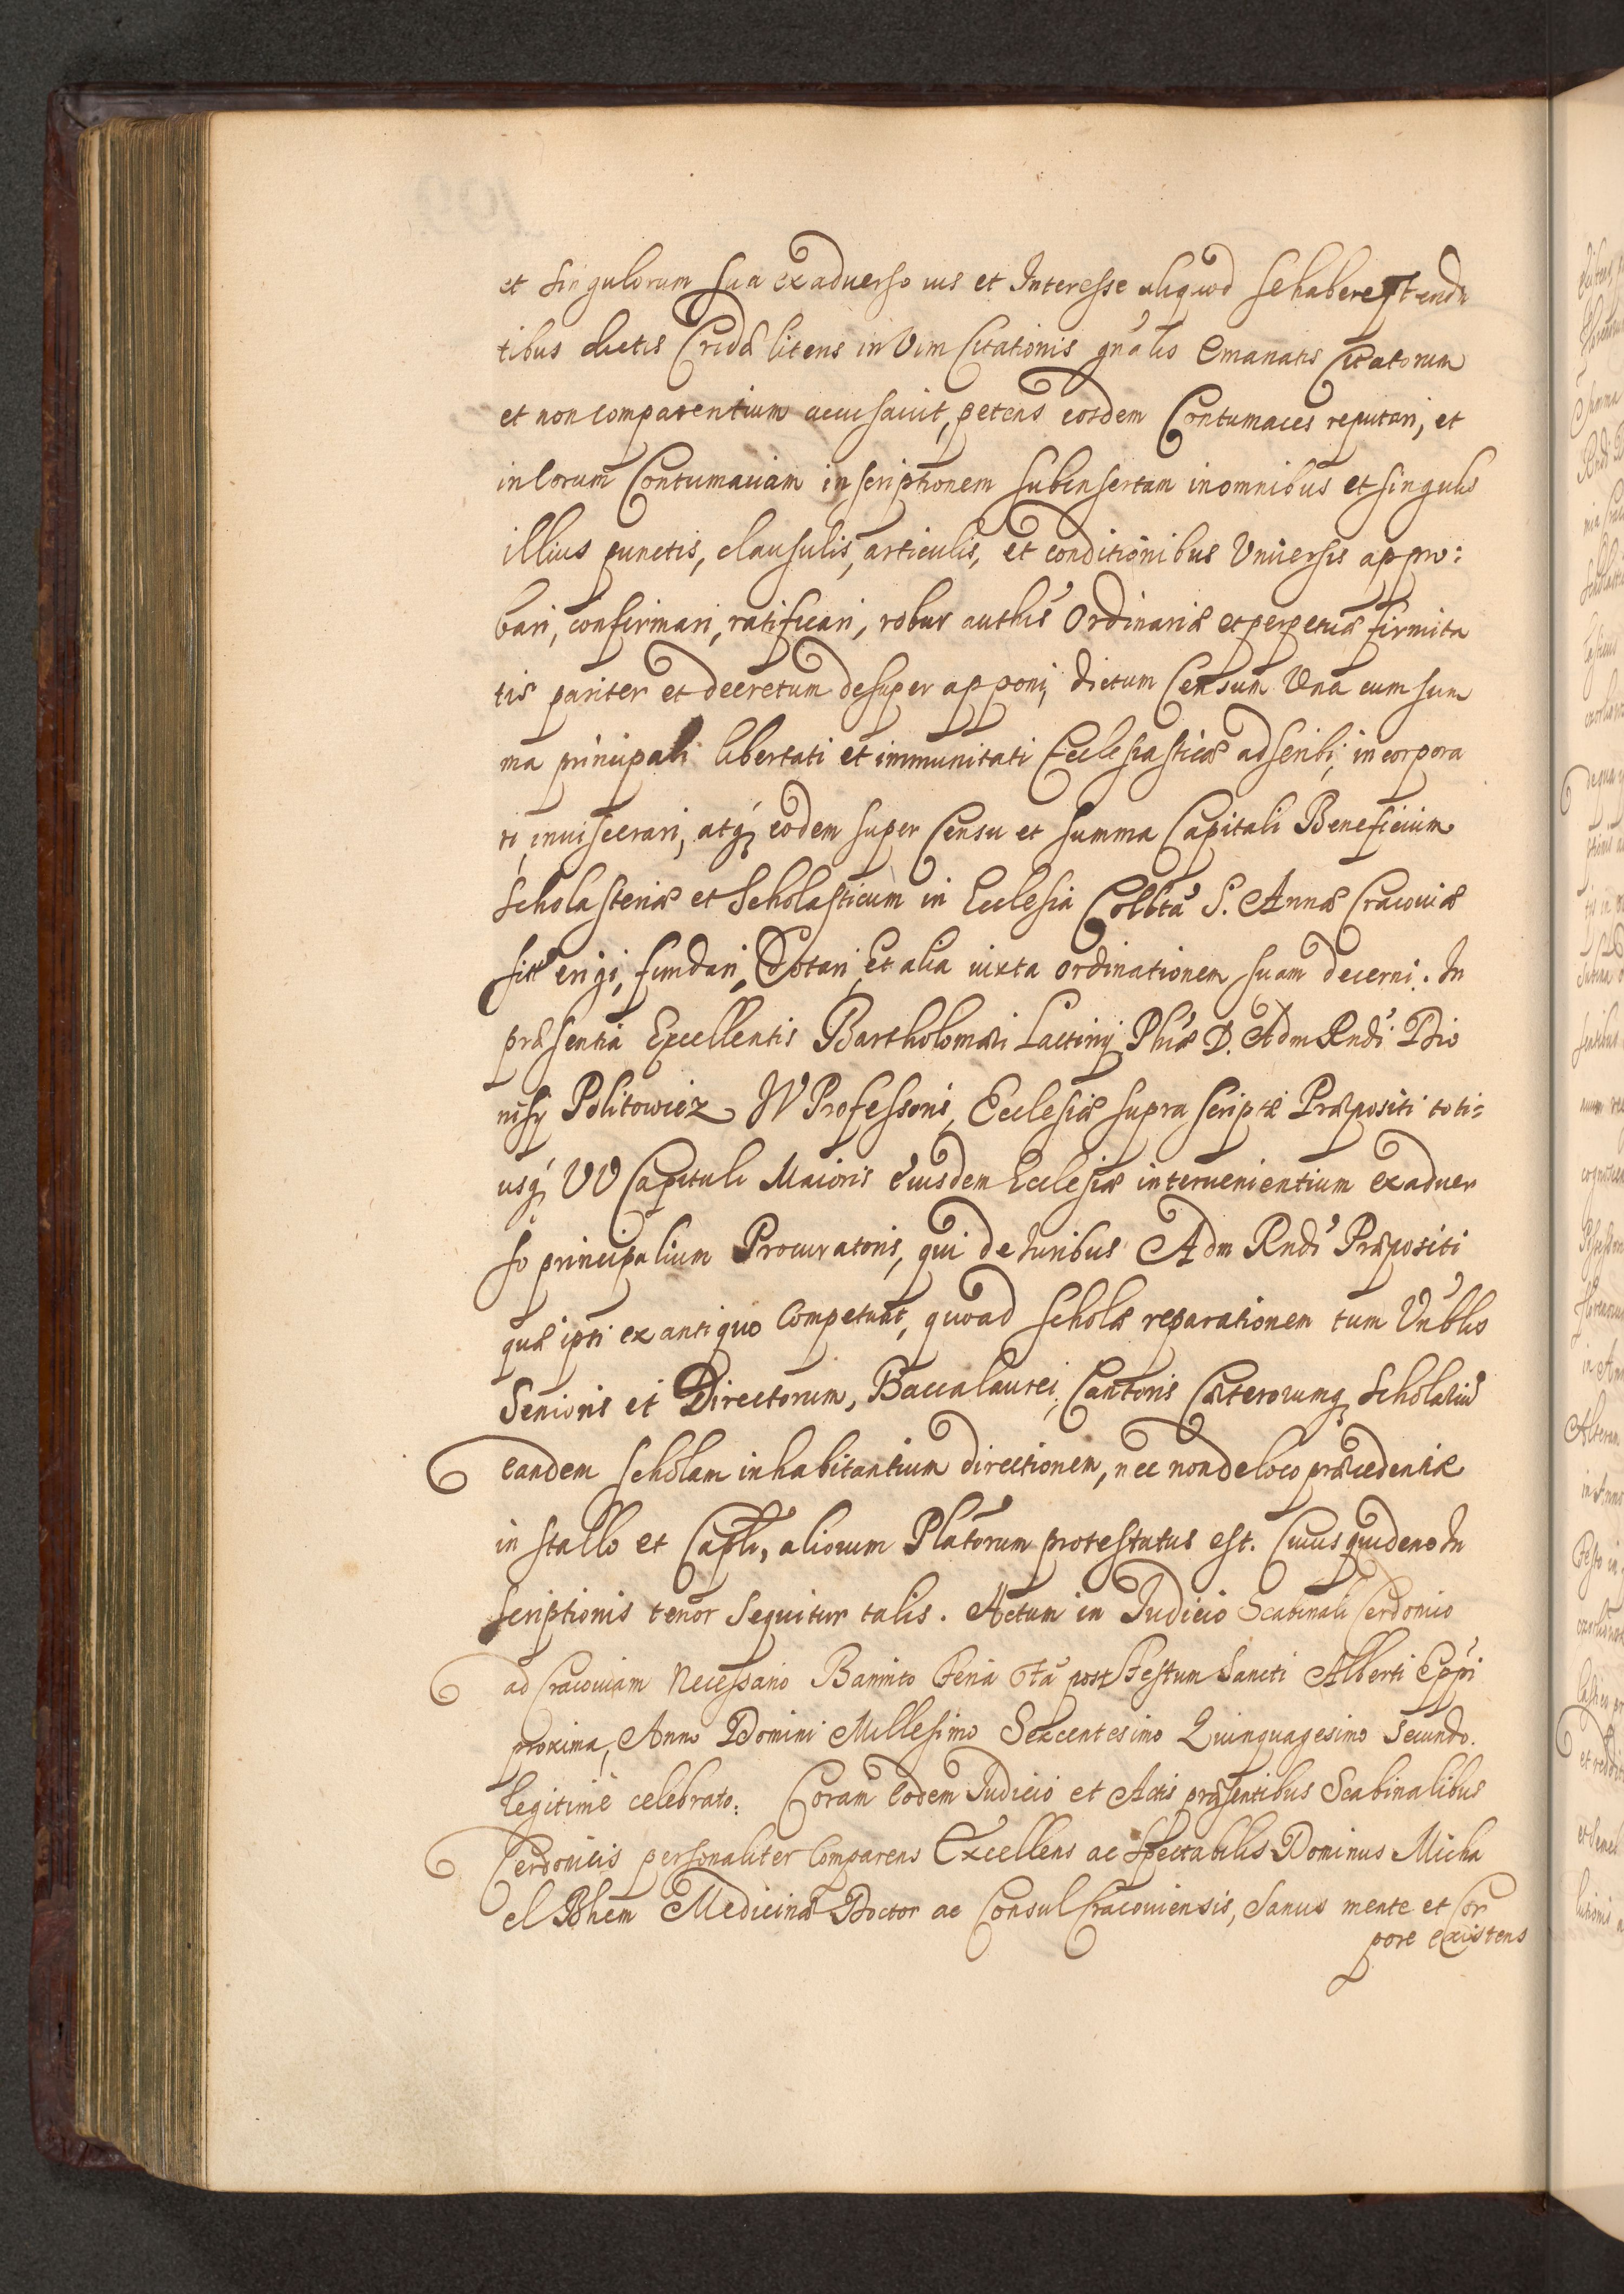 et singulorum sua ex aduerso ius et Interesse aliquod se habere
tibus dictis Cridâ litens in Vim Citationis gñalis Emanatis Citatorum
et non comparentium accusauit, petens eosdem Contumaces reputari, et
in Eorum Contumaciam inscriptionem subinsertam in omnibus et singulis
illius punctis, clausulis, articulis, et conditionibus Vniuersis appro:
bari, confirmari, ratificari, robur authis Ordinariæ et perpetuæ firmita
tis pariter et decretum desuper apponi, dictum Censum Vna cum sum
ma principali libertati et immunitati Ecclesiasticæ adscribi, incorpora
ri, inuiscerari, atq; eodem super Censu et summa Capitali Beneficium
Scholasteriæ et Scholasticum in Ecclesia Collta S. Annæ Cracouiæ
sitâ erigi, fundari, Dotari, et alia iuxta ordinationem suam decerni. In
præsentia Excellentis Bartholomæi Lactinij Phiæ D. Adm Rndi Dio
nisij Politowicz W Professoris, Ecclesiæ supra scriptæ Præpositi toti=
usq; VV Capituli Maioris eiusdem Ecclesiæ interuenientium ex aduer
so principalium Procuratoris, qui de Iuribus Adm Rndi Præpositi
quæ ipsi ex antiquo Competunt, quoad scholæ reparationem tum Vnblis
Senioris et Directorum, Baccalaurei, Cantoris Cæterorumq; Scholariũ
eandem scholam inhabitantium directionem, nec non de loco præcedentiæ
in stallo et Caplo, aliorum Plãtorum protestatus est. Cuius quidem In
scriptionis tenor sequitur talis. Actum in Iudicio Scabinali Cerdonico
ad Cracouiam Necessario Bannito Feria 6ta post Festum Sancti Alberti Eppi
proxima, Anno Domini Millesimo Sexcentesimo Quinquagesimo Secundo.
legitimè celebrato. Coram Eodem Iudicio et Actis præsentibus Scabinalibus
Cerdonicis personaliter Comparens Excellens ac Spectabilis Dominus Micha
el Bhem Medicinæ Doctor ac Consul Cracouiensis, Sanus mente et Cor
pore existens